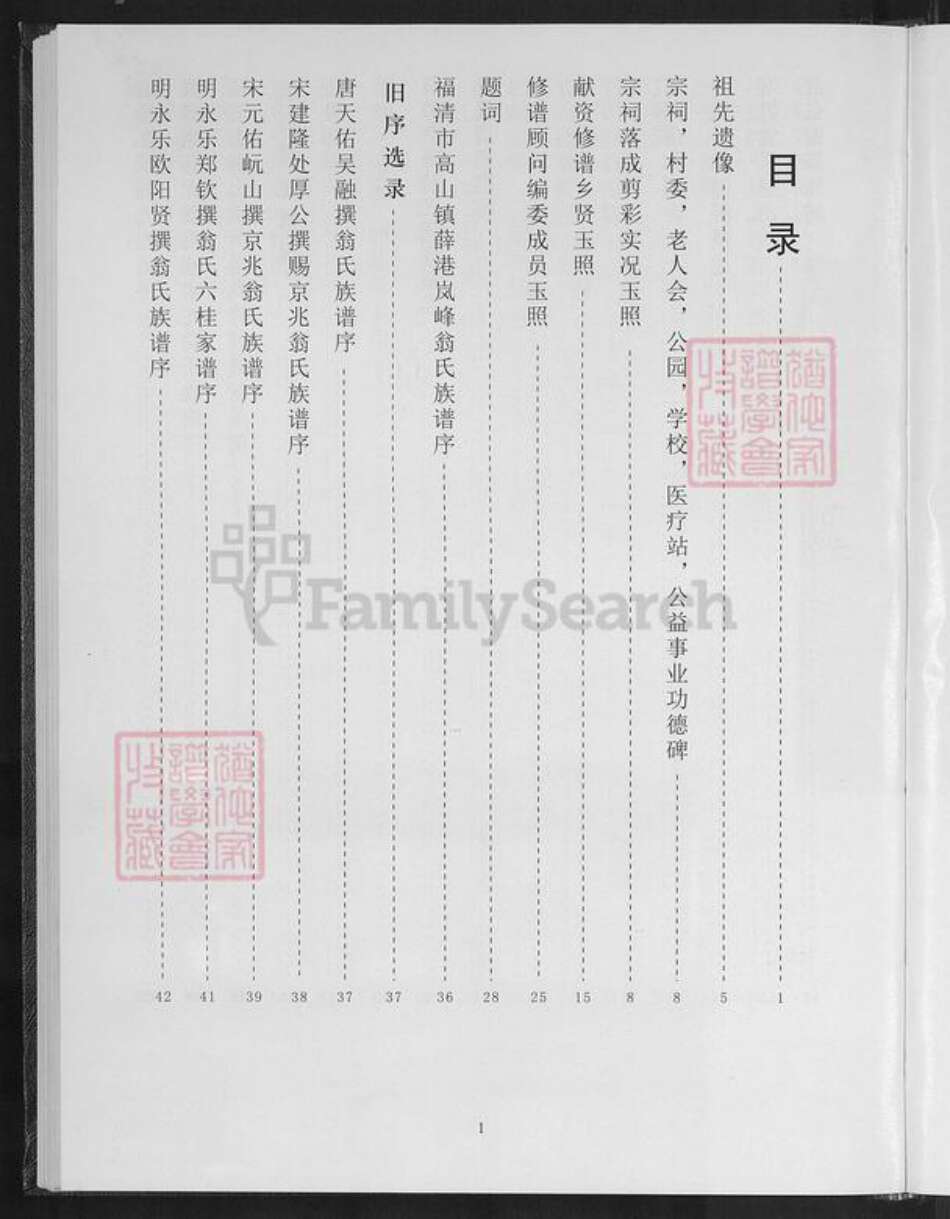 目录 1
祖先遗像 5
宗祠，村委，老人会，公园，学校，医疗站，公益事业功德碑 8
宗祠落成剪彩实况玉照 8
献资修谱乡贤玉照 15
修谱顾问编委成员玉照 25
题词 28
福清市高山镇薛港岚峰翁氏族谱序 36
旧序选录 37
唐天佑吴融撰翁氏族谱序 37
宋建隆处厚公撰赐京兆翁氏族谱序 38
宋元佑岏山撰京兆翁氏族谱序 39
明永乐郑钦撰翁氏六桂家谱序 41
明永乐欧阳贤撰翁氏族谱序 42
1
FamilySearch